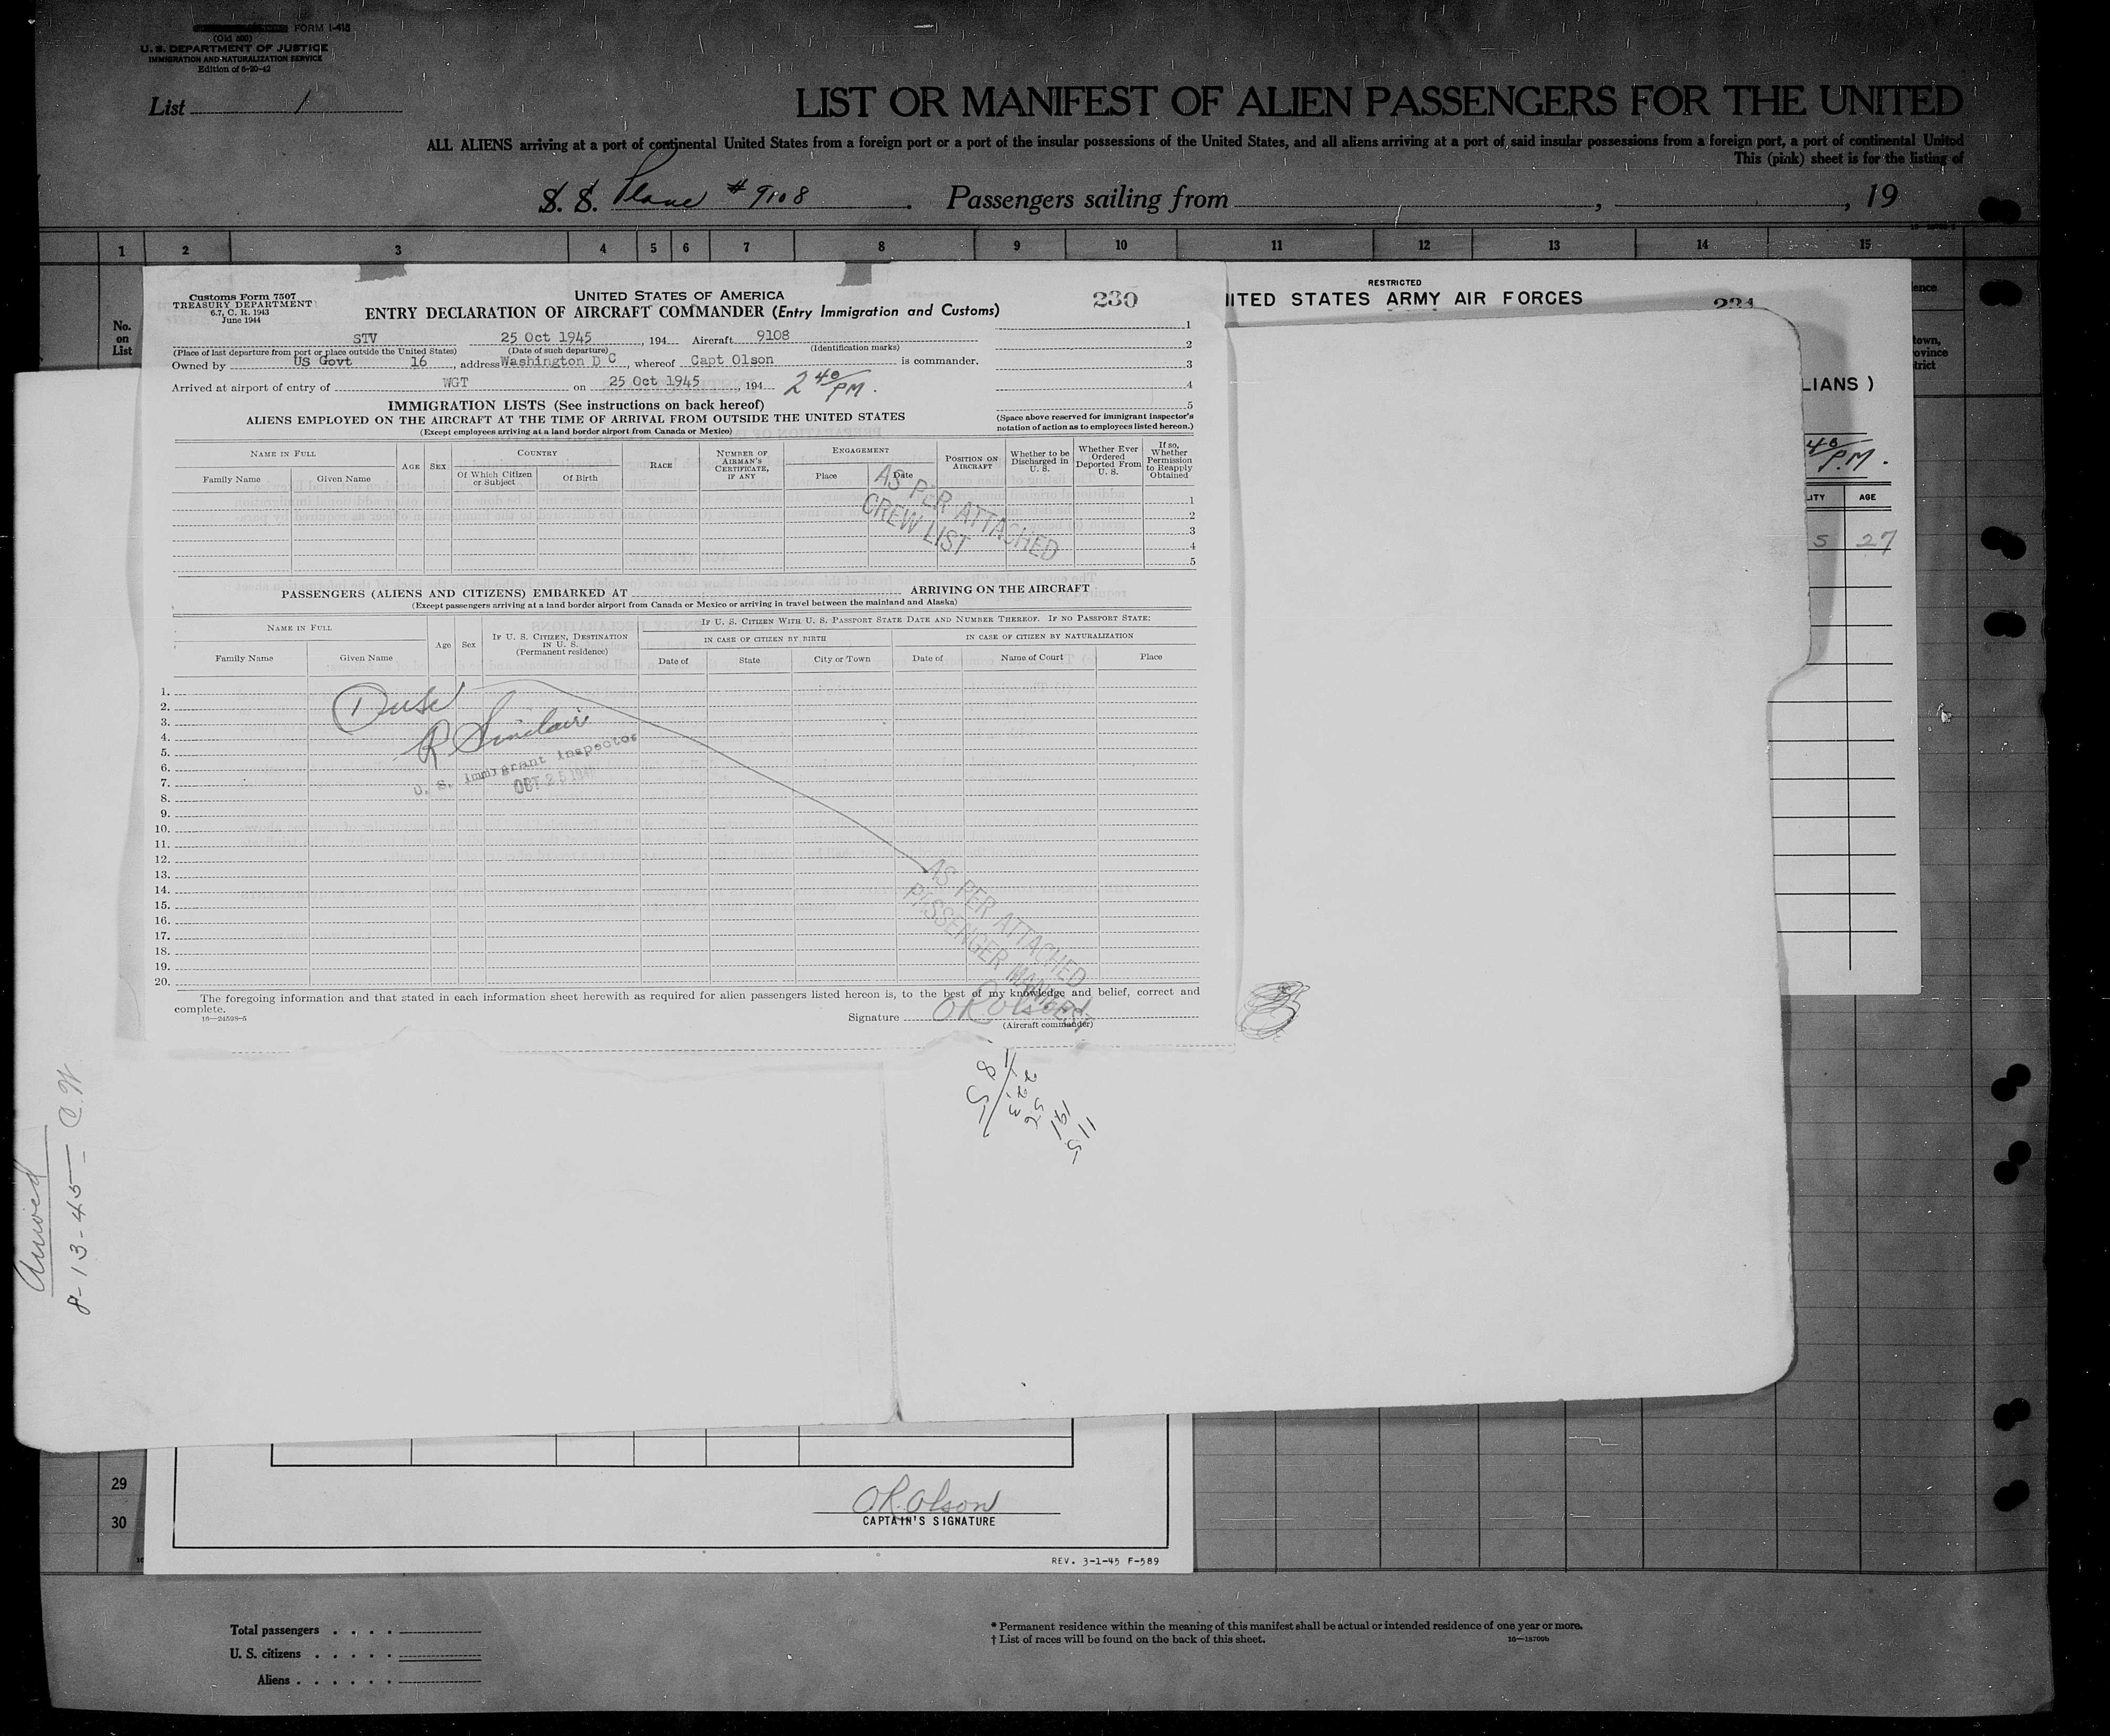 FORM I-418
(Old 500)
U. S. DEPARTMENT OF JUSTICE
IMMIGRATION AND NATURALIZATION SERVICE
Edition of 6-20-42
List 1
LIST OR MANIFEST OF ALIEN PASSENGERS FOR THE UNITED
ALL ALIENS arriving at a port of continental United States from a foreign port or a port of the insular possessions of the United States, and all aliens arriving at a port of said insular possessions from a foreign port, a port of continental United
This (pink) sheet is for the listing of
S. S. Plane # 9108. Passengers sailing from , , 19
1 2 3 4 5 6 7 8 9 10 11 12 13 14 15
No.
on
List
Customs Form 7507
TREASURY DEPARTMENT
6.7, C. R. 1943
June 1944
UNITED STATES OF AMERICA
230
ENTRY DECLARATION OF AIRCRAFT COMMANDER (Entry Immigration and Customs)
STV 25 Oct 1945, 194 Aircraft 9108
(Place of last departure from port or place outside the United States) (Date of such departure) (Identification marks)
Owned by US Govt 16, address Washington D C, whereof Capt Olson is commander.
Arrived at airport of entry of WGT on 25 Oct 1945, 194 2 40/PM.
1
2
3
4
5
(Space above reserved for immigrant inspector's
notation of action as to employees listed hereon.)
IMMIGRATION LISTS (See instructions on back hereof)
ALIENS EMPLOYED ON THE AIRCRAFT AT THE TIME OF ARRIVAL FROM OUTSIDE THE UNITED STATES
(Except employees arriving at a land border airport from Canada or Mexico)
NAME IN FULL
Family Name Given Name
AGE SEX
COUNTRY
Of Which Citizen or Subject Of Birth
RACE
NUMBER OF AIRMAN'S CERTIFICATE, IF ANY
ENGAGEMENT
Place Date
POSITION ON AIRCRAFT
Whether to be Discharged in U. S.
Whether Ever Ordered Deported From U. S.
If so, Whether Permission to Reapply Obtained
AS PER ATTACHED
CREW LIST
1
2
3
4
5
PASSENGERS (ALIENS AND CITIZENS) EMBARKED AT ARRIVING ON THE AIRCRAFT
(Except passengers arriving at a land border airport from Canada or Mexico or arriving in travel between the mainland and Alaska)
NAME IN FULL
Family Name Given Name
Age Sex
IF U. S. CITIZEN, DESTINATION IN U. S.
(Permanent residence)
IF U. S. CITIZEN WITH U. S. PASSPORT STATE DATE AND NUMBER THEREOF. IF NO PASSPORT STATE:
IN CASE OF CITIZEN BY BIRTH IN CASE OF CITIZEN BY NATURALIZATION
Date of State City or Town Date of Name of Court Place
1.
2.
3.
4.
5.
6.
7.
8.
9.
10.
11.
12.
13.
14.
15.
16.
17.
18.
19.
20.
R Sinclair
U. S. Immigrant Inspector
OCT 25 1945
AS PER ATTACHED
PASSENGER MANIFEST
The foregoing information and that stated in each information sheet herewith as required for alien passengers listed hereon is, to the best of my knowledge and belief, correct and
complete.
16—24598-5
Signature O R Olson
(Aircraft commander)
RESTRICTED
ITED STATES ARMY AIR FORCES
231
LIANS )
40/P.M.
LITY AGE
S 27
ence
town,
ovince
trict
Arrived
8-13-45- C.W.
29
30
O R Olson
CAPTAIN'S SIGNATURE
REV. 3-1-45 F-589
Total passengers . . . .
U. S. citizens . . . . .
Aliens . . . . . .
* Permanent residence within the meaning of this manifest shall be actual or intended residence of one year or more.
† List of races will be found on the back of this sheet.
16—18709b